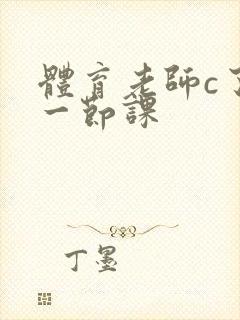 體育老師c了
一節課
丁墨